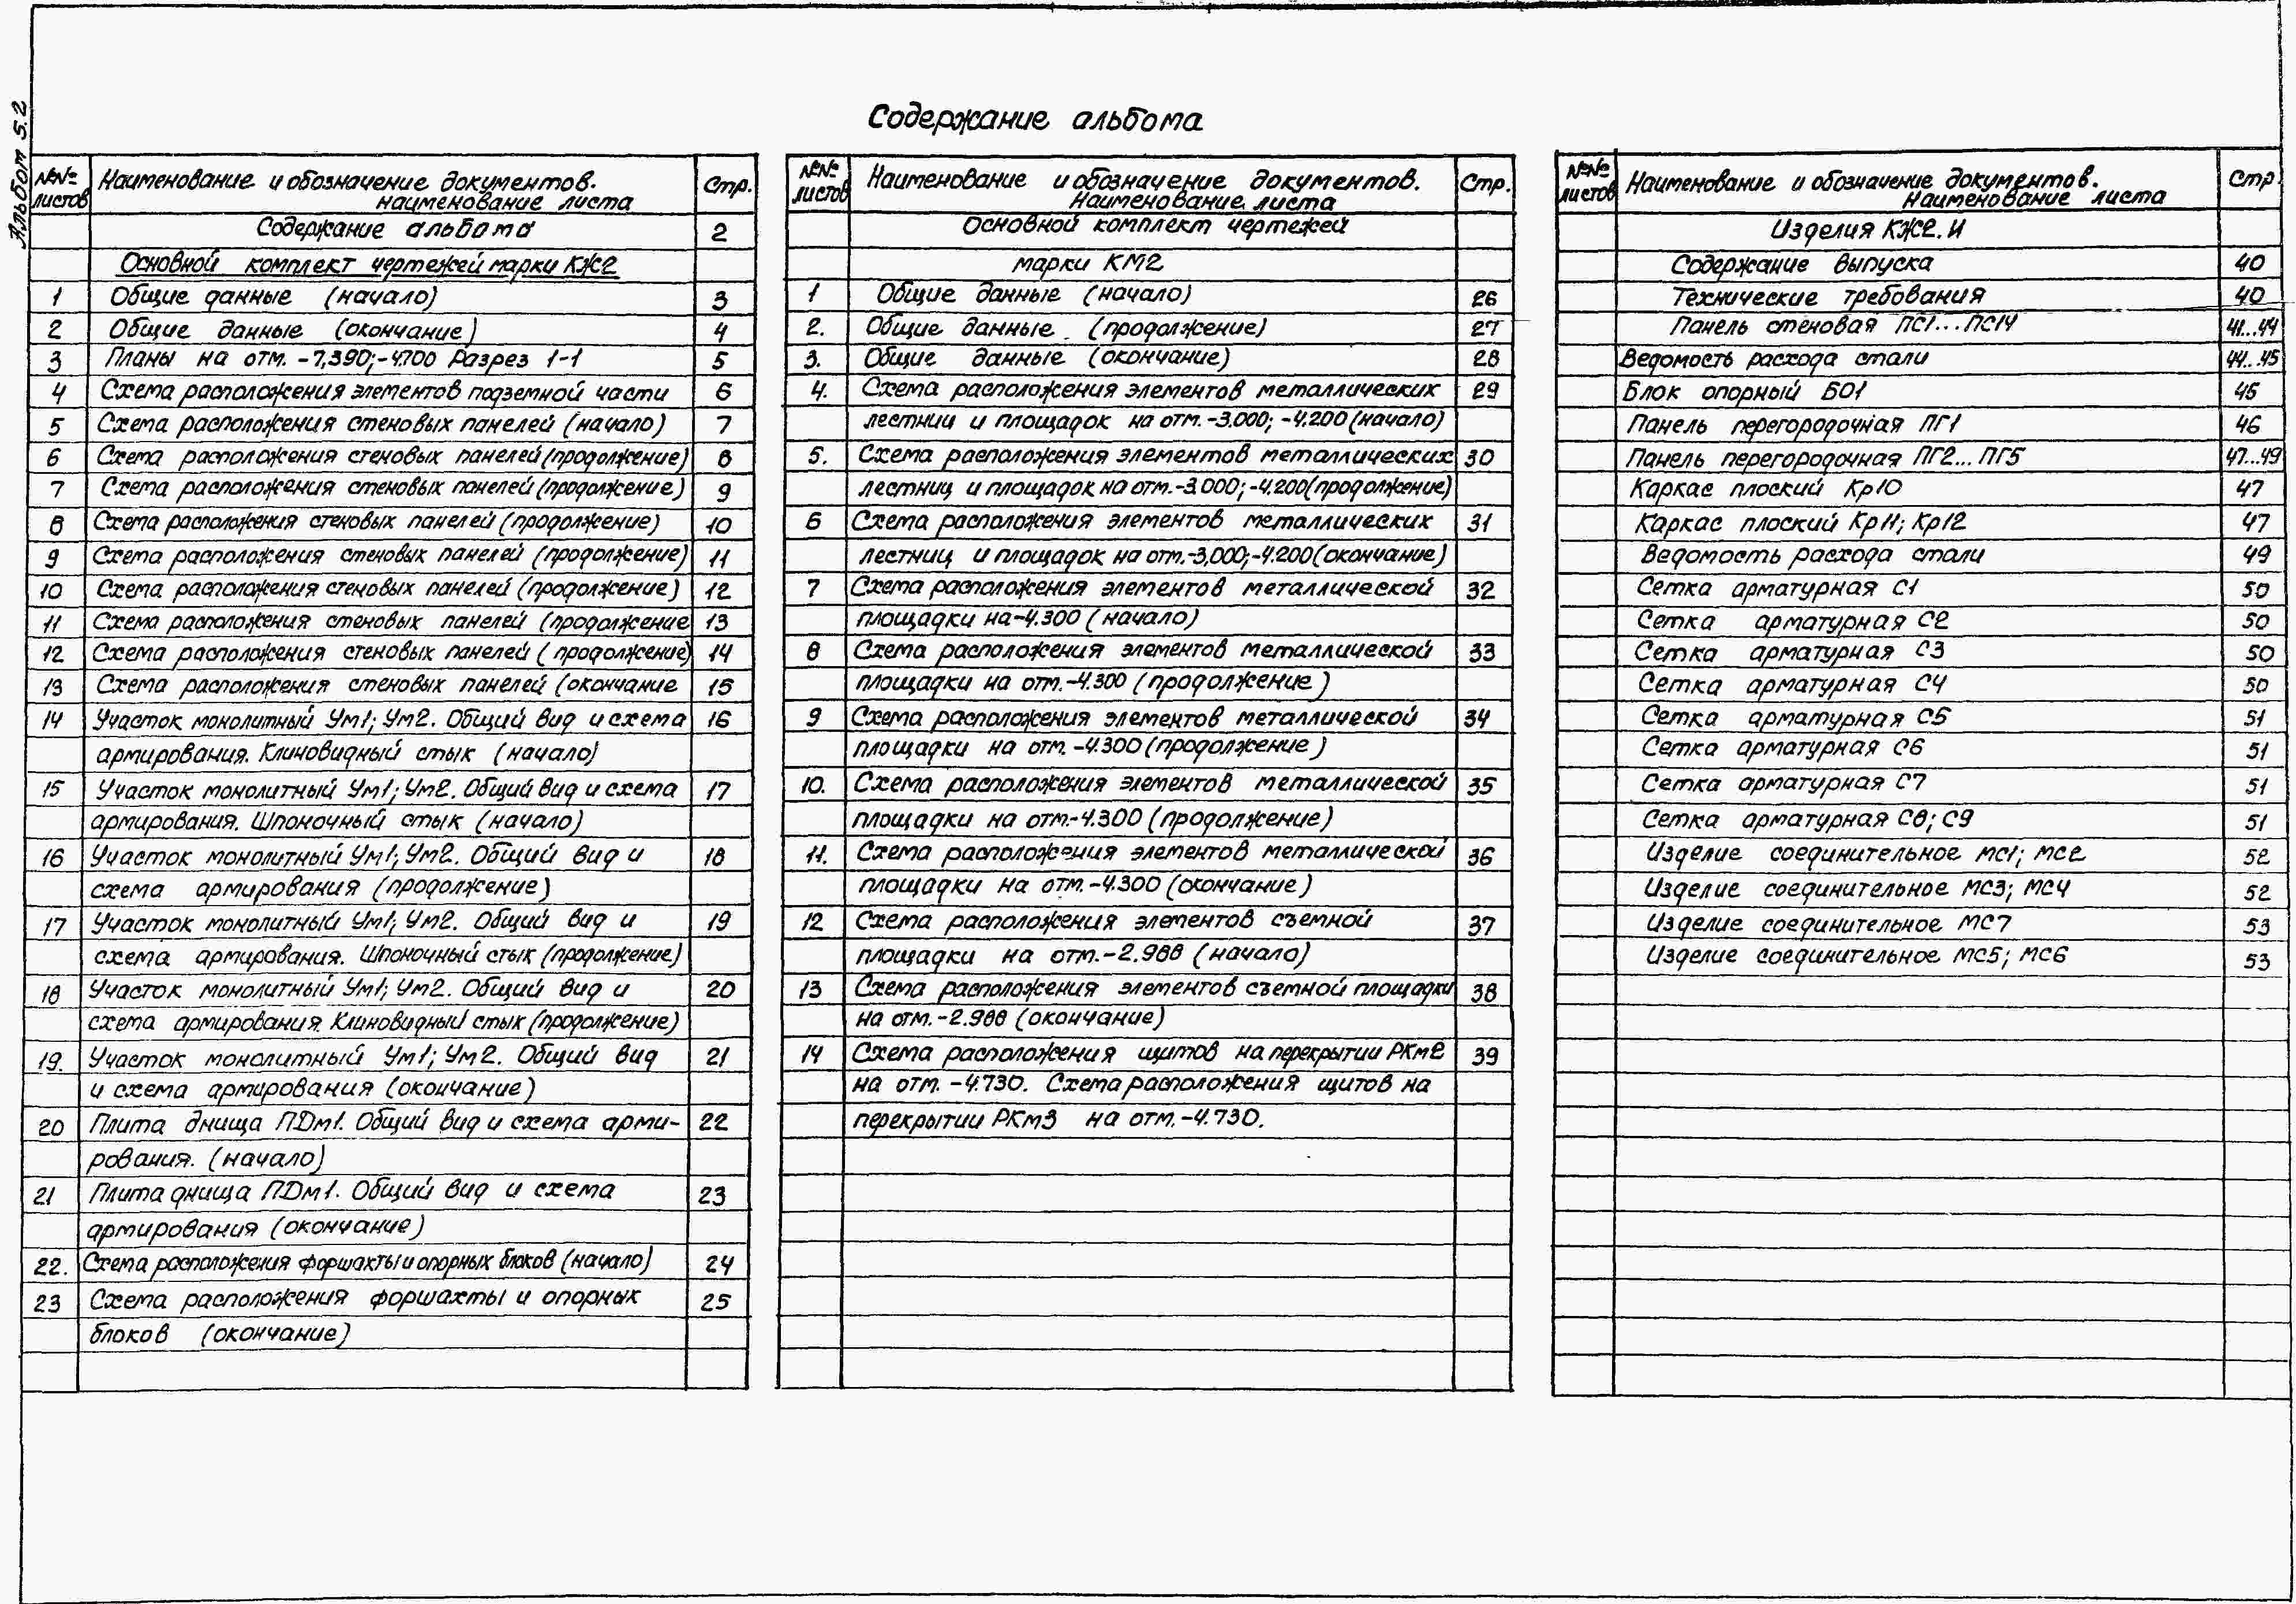 Альбом 5.2
Содержание альбома
№№ листов
Наименование и обозначение документов.
наименование листа
Стр.
Содержание альбома 2
Основной комплект чертежей марки КЖ2
1 Общие данные (начало) 3
2 Общие данные (окончание) 4
3 Планы на отм. -7,390; -4.700 Разрез 1-1 5
4 Схема расположения элементов подземной части 6
5 Схема расположения стеновых панелей (начало) 7
6 Схема расположения стеновых панелей (продолжение) 8
7 Схема расположения стеновых панелей (продолжение) 9
8 Схема расположения стеновых панелей (продолжение) 10
9 Схема расположения стеновых панелей (продолжение) 11
10 Схема расположения стеновых панелей (продолжение) 12
11 Схема расположения стеновых панелей (продолжение 13
12 Схема расположения стеновых панелей (продолжение) 14
13 Схема расположения стеновых панелей (окончание 15
14 Участок монолитный Ум1; Ум2. Общий вид и схема 16
армирования. Клиновидный стык (начало)
15 Участок монолитный Ум1; Ум2. Общий вид и схема 17
армирования. Шпоночный стык (начало)
16 Участок монолитный Ум1; Ум2. Общий вид и 18
схема армирования (продолжение)
17 Участок монолитный Ум1; Ум2. Общий вид и 19
схема армирования. Шпоночный стык (продолжение)
18 Участок монолитный Ум1; Ум2. Общий вид и 20
схема армирования. Клиновидный стык (продолжение)
19. Участок монолитный Ум1; Ум2. Общий вид 21
и схема армирования (окончание)
20 Плита днища ПДм1. Общий вид и схема арми- 22
рования. (начало)
21 Плита днища ПДм1. Общий вид и схема 23
армирования (окончание)
22. Схема расположения форшахты и опорных блоков (начало) 24
23 Схема расположения форшахты и опорных 25
блоков (окончание)
№№ листов
Наименование и обозначение документов.
Наименование листа
Стр.
Основной комплект чертежей
марки КМ2
1 Общие данные (начало) 26
2. Общие данные. (продолжение) 27
3. Общие данные (окончание) 28
4. Схема расположения элементов металлических 29
лестниц и площадок на отм. -3.000; -4.200 (начало)
5. Схема расположения элементов металлических 30
лестниц и площадок на отм. -3.000; -4.200 (продолжение)
6 Схема расположения элементов металлических 31
лестниц и площадок на отм. -3,000; -4.200 (окончание)
7 Схема расположения элементов металлической 32
площадки на -4.300 (начало)
8 Схема расположения элементов металлической 33
площадки на отм. -4.300 (продолжение)
9 Схема расположения элементов металлической 34
площадки на отм. -4.300 (продолжение)
10. Схема расположения элементов металлической 35
площадки на отм. -4.300 (продолжение)
11. Схема расположения элементов металлической 36
площадки на отм. -4.300 (окончание)
12 Схема расположения элементов съемной 37
площадки на отм. -2.988 (начало)
13 Схема расположения элементов съемной площадки 38
на отм. -2.988 (окончание)
14 Схема расположения щитов на перекрытии РКм2 39
на отм. -4.730. Схема расположения щитов на
перекрытии РКм3 на отм. -4.730.
№№ листов
Наименование и обозначение документов.
Наименование листа
Стр
Изделия КЖ2.И
Содержание выпуска 40
Технические требования 40
Панель стеновая ПС1...ПС14 41...44
Ведомость расхода стали 44...45
Блок опорный БО1 45
Панель перегородочная ПГ1 46
Панель перегородочная ПГ2...ПГ5 47...49
Каркас плоский Кр10 47
Каркас плоский Кр11; Кр12 47
Ведомость расхода стали 49
Сетка арматурная С1 50
Сетка арматурная С2 50
Сетка арматурная С3 50
Сетка арматурная С4 50
Сетка арматурная С5 51
Сетка арматурная С6 51
Сетка арматурная С7 51
Сетка арматурная С8; С9 51
Изделие соединительное МС1; МС2 52
Изделие соединительное МС3; МС4 52
Изделие соединительное МС7 53
Изделие соединительное МС5; МС6 53